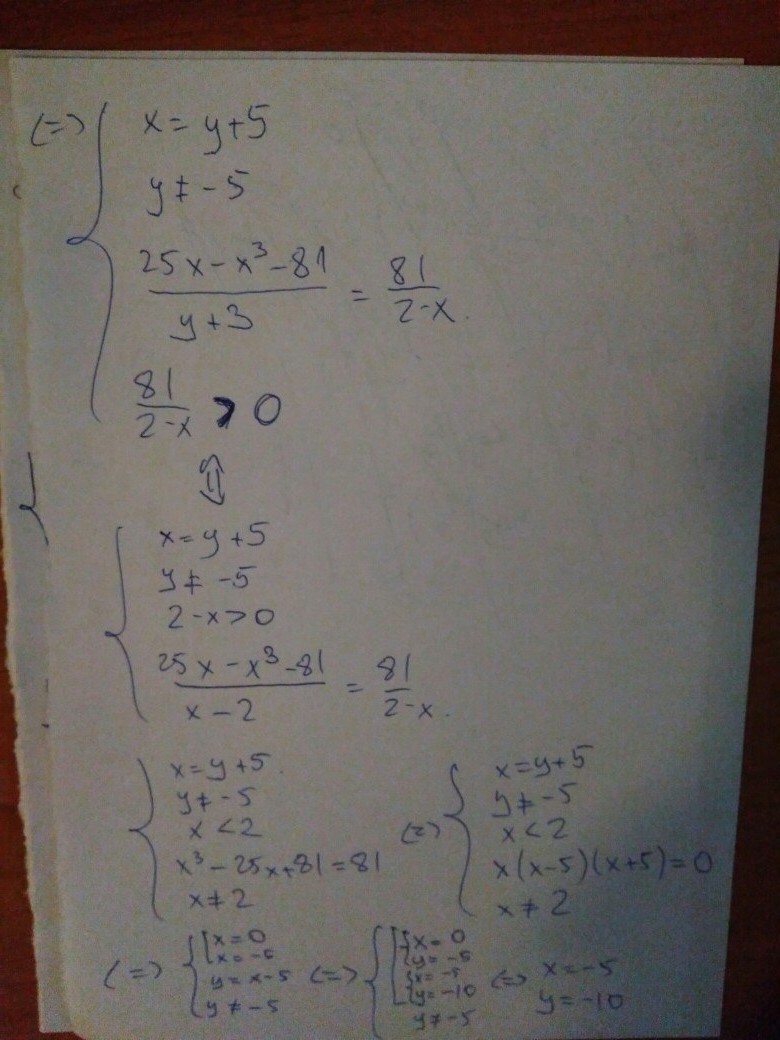 (=> { x = y+5
y ≠ -5
25x - x³ - 81 / y+3 = 81 / 2-x.
81 / 2-x > 0
⇕
{ x = y+5
y ≠ -5
2-x > 0
25x - x³ - 81 / x-2 = 81 / 2-x.
{ x = y+5.
y ≠ -5
x < 2
x³ - 25x + 81 = 81
x ≠ 2
(=) { x = y+5
y ≠ -5
x < 2
x(x-5)(x+5) = 0
x ≠ 2
(=> { [ x = 0
x = -5
y = x-5
y ≠ -5
(=> { [ { x = 0
y = -5
{ x = -5
y = -10
y ≠ -5
(=> x = -5
y = -10